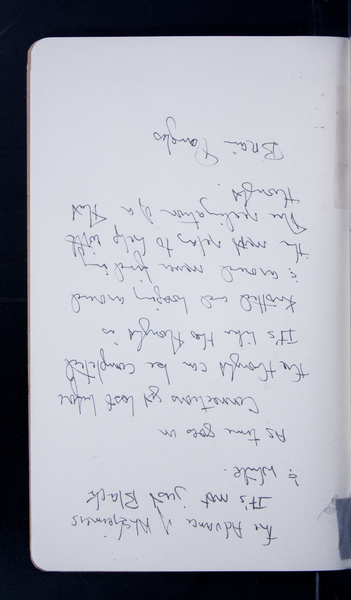 The Advance of Alzheimers
It's not just Black
& White.
As time goes on
Connections get lost before
the thought can be completed
It's like the thought is
knotted and looping around
& around never finding
the next relay to help with
the realization of a
thought.
Brain Tangles